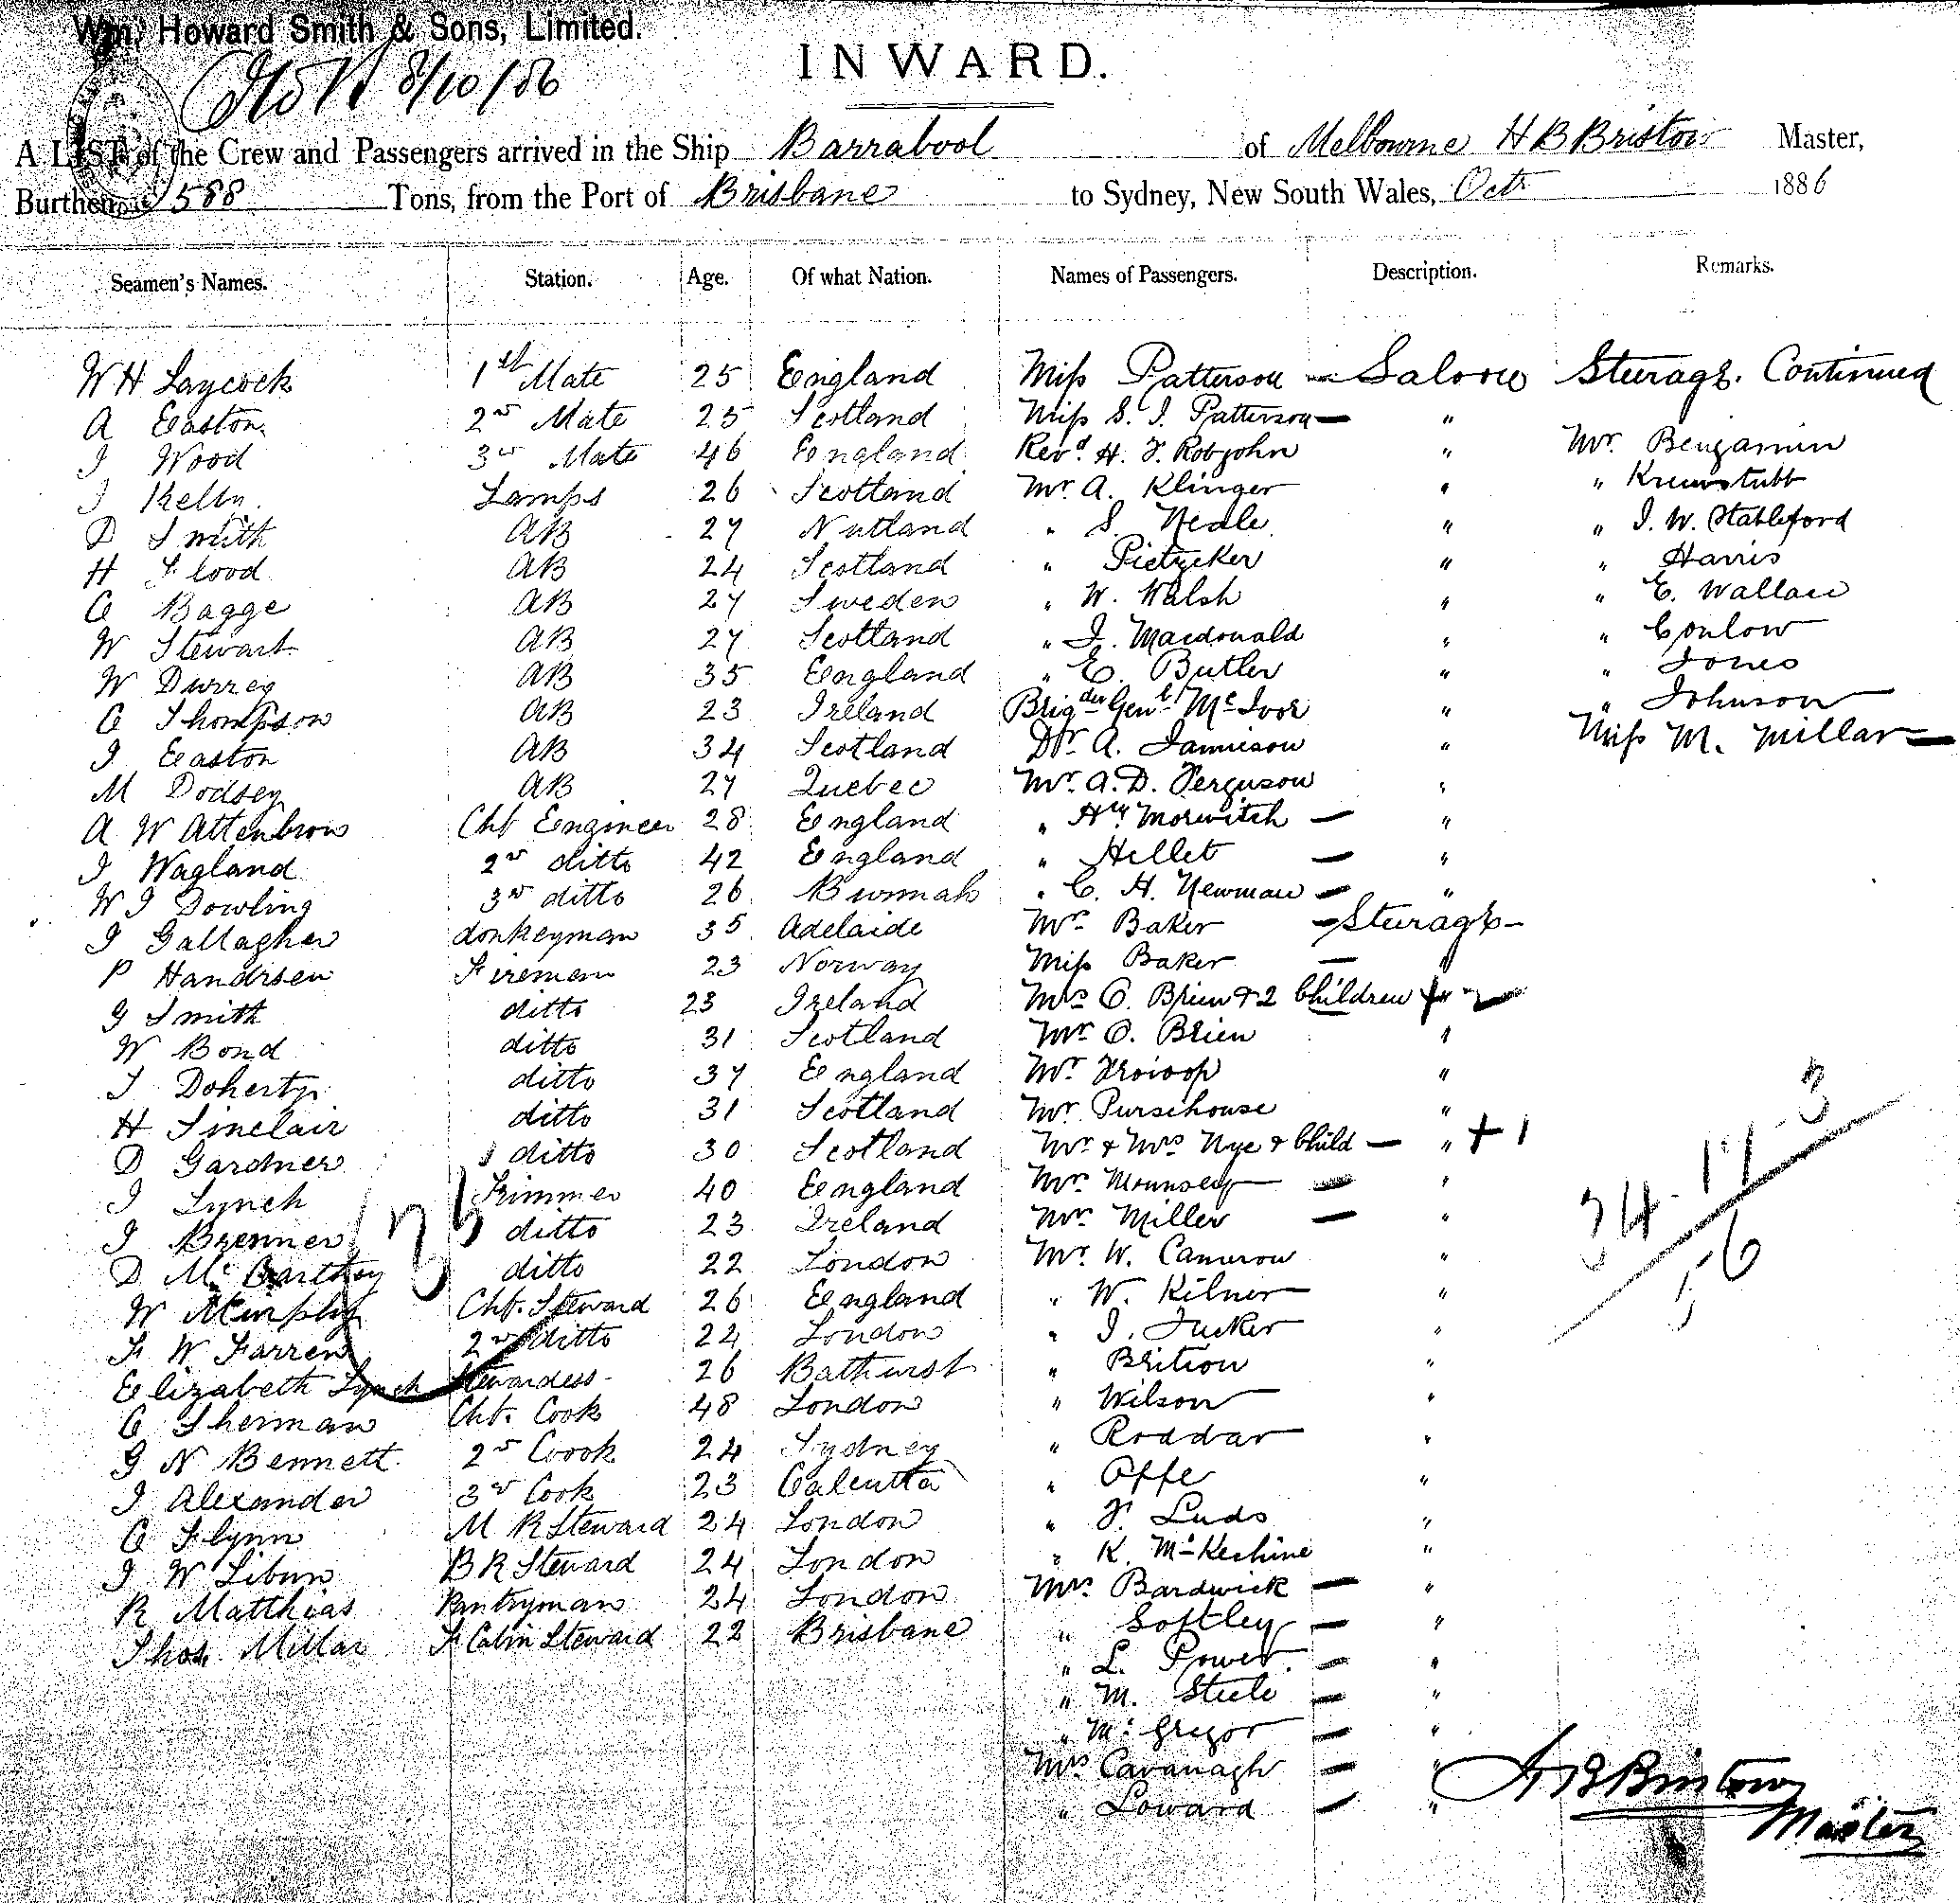 Wm. Howard Smith & Sons, Limited.
8/10/86
INWARD.
A LIST of the Crew and Passengers arrived in the Ship Barrabool of Melbourne H B Bristow Master,
Burthen 588 Tons, from the Port of Brisbane to Sydney, New South Wales, Octr 1886
Seamen's Names. Station. Age. Of what Nation. Names of Passengers. Description. Remarks.
W H Laycock 1st Mate 25 England Miss Patterson — Saloon Steerage. Continued
A Easton 2nd Mate 25 Scotland Miss S. J. Patterson — "
J Wood 3rd Mate 46 England Revd. H. T. Robjohn " Mr. Benjamin
J Kelly Lamps 26 Scotland Mr. A. Klinger " "
D Smith AB 27 " S. Neale " " J. W. Stableford
H Flood AB 24 Scotland " Pietzcker " " Harris
C Bagge AB 27 Sweden " W. Walsh " " E. Wallace
W Stewart AB 27 Scotland " J. Macdonald " " Conlow
W Durrey AB 35 England " E. Butler " " Jones
C Thompson AB 23 Ireland Brigder Genl. McIvor " " Johnson
J Easton AB 34 Scotland Dr. A. Jamieson " Miss M. Millar —
M Dodsey AB 27 Quebec Mr. A. D. Ferguson "
A W Attenbrow Chf Engineer 28 England " Hy. Morwitch — "
J Wagland 2nd ditto 42 England " Hellet — "
W J Dowling 3rd ditto 26 Burmah " C. H. Newman — "
J Gallagher donkeyman 35 Adelaide Mrs Baker — Steerage —
P Handrsen Fireman 23 Norway Miss Baker — "
G Smith ditto 23 Ireland Mrs O. Brien & 2 Children "
W Bond ditto 31 Scotland Mr. O. Brien "
J Doherty ditto 37 England Mr. "
H Sinclair ditto 31 Scotland Mr Pursehouse "
D Gardner ditto 30 Scotland Mr. & Mrs Nye & Child — " + 1
J Lynch Trimmer 40 England Mrs. Mounsey — "
J Brenner ditto 23 Ireland Mrs Miller — "
D McCarthey ditto 22 London Mr. W. Cameron "
W Murphy Chf. Steward 26 England " W. Kilner "
F W Farren 2nd ditto 22 London " J. Tucker "
Elizabeth Lynch Stewardess 26 Bathurst " Brition "
C Sherman Chf. Cook 48 London " Wilson "
G N Bennett 2nd Coook 24 Sydney " Roddar "
J Alexander 3rd Cook 23 Calcutta " Offe "
C Flynn M R Steward 24 London " F. Luds "
J W Libun B R Steward 24 London " K. McKechine "
R Matthias Pantryman 24 London Mrs. Bardwick — "
Thos. Millar F Cabin Steward 22 Brisbane " Softley — "
" L. Power — "
" M. Steele — "
" McGregor — "
Mrs Cavanagh — "
" Loward — "
34 - 17 - 3
56
H B Bristow
Master